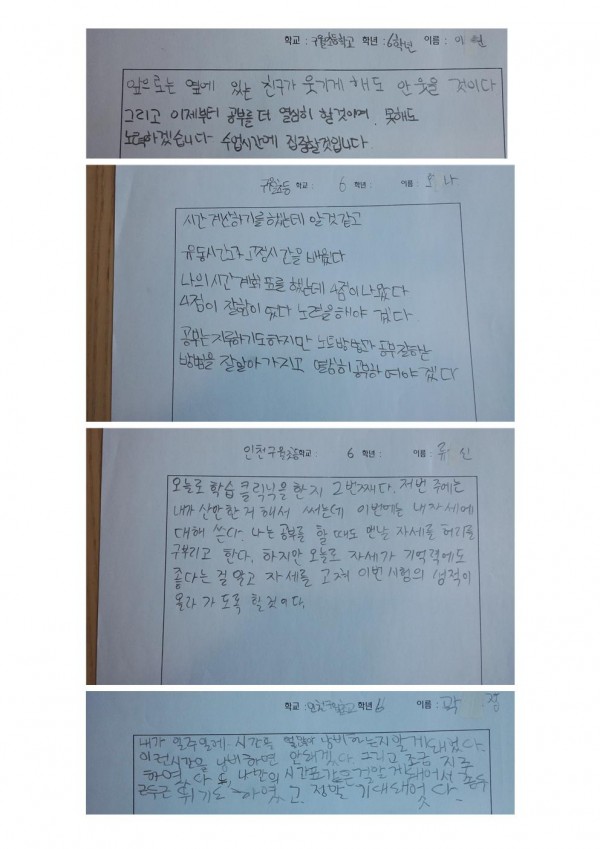 학교 : 구월초등학교 학년 : 6학년 이름 : 이 원
앞으로는 옆에 있는 친구가 웃기게 해도 안 웃을 것이다
그리고 이제부터 공부를 더 열심히 할것이며, 못해도
노력하겠습니다 수업시간에 집중할것입니다.
구월초등 학교 : 6 학년 : 이름 : 나
시간 계산하기를 했는데 알것같고
유동시간과 고정시간을 배웠다
나의 시간 계획표를 했는데 4점이 나왔다
4점이 잘함이 었다 노력을해야 겠다
공부는 지루하기도하지만 노트방법과 공부 잘하는
방법을 잘알아가지고 열심히 공부하 여야 겠 다
인천구월초등학교 : 6 학년 : 이름 : 류 신
오늘로 학습 클리닉을 한지 2번째다. 저번 주에는
내가 산만한거 해서 써는데 이번에는 내 자세에
대해 쓴다. 나는 공부를 할 때도 맨날 자세를 허리를
구부리고 한다. 하지만 오늘로 자세가 기억력에도
좋다는 걸 알고 자세를 고쳐 이번 시험의 성적이
올라 가 도록 할 것이다.
학교 : 학년 6 이름 : 곽 정
내가 일주일에 시간을 얼만아 낭비하는지알게돼었다.
이런시간을 낭비하면 안돼겠다 그리고 조금 지루
하였다 또 나만의 시간표같은걸알게돼어서
뛰기도 하였고 정말 기대돼었다.